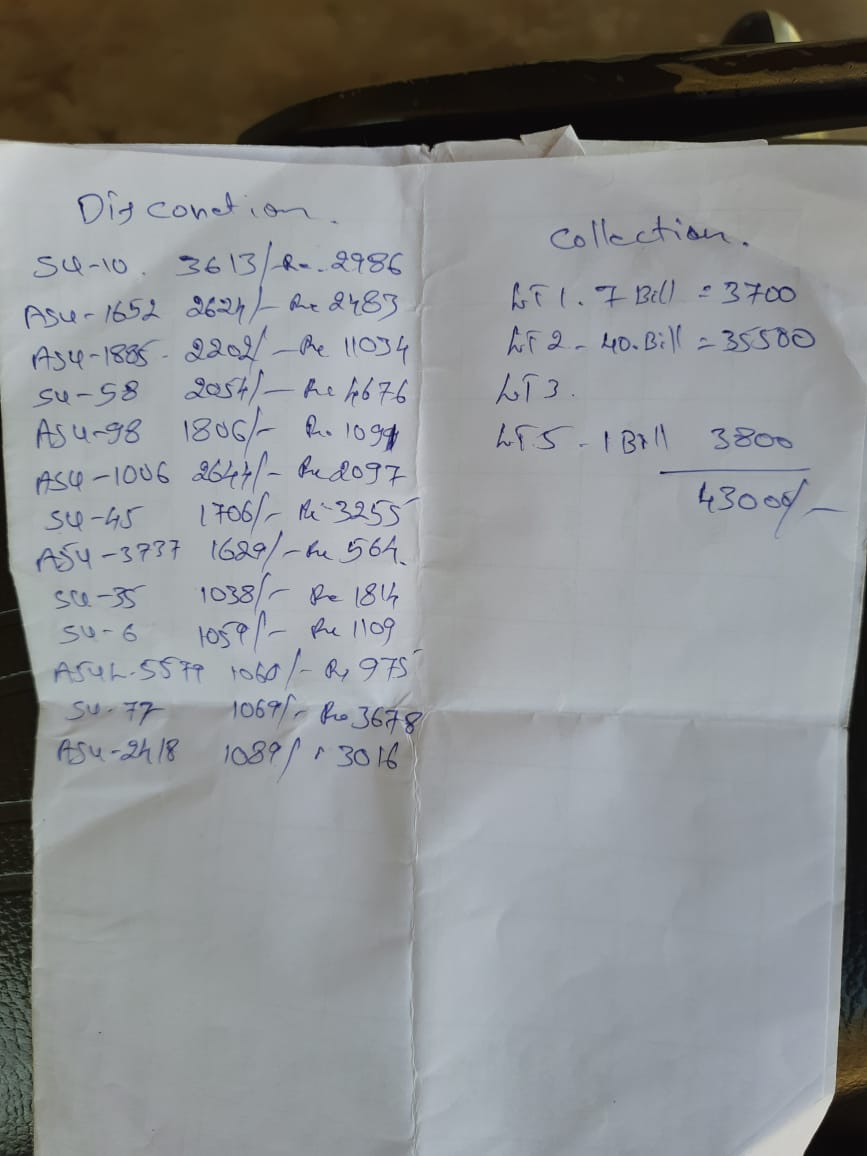 Disconetion.
SU-10. 3613/- Re. 2986
ASU-1652 2624/- Re 2483
ASU-1885- 2202/- Re 11034
SU-58 2054/- Re 4676
ASU-98 1806/- Re. 1091
ASU-1006 2644/- Re 2097
SU-45 1706/- Re-3255
ASU-3737 1629/- Re 564.
SU-35 1038/- Re 1814
SU-6 1059/- Re 1109
ASUL-5579 1060/- Re 975
SU-77 1069/- Re 3678
ASU-2418 1089/ 3016
Collection.
LT 1. 7 Bill = 3700
LT 2 - 40. Bill = 35500
LT 3.
LT.5 - 1 Bill 3800
43000/-